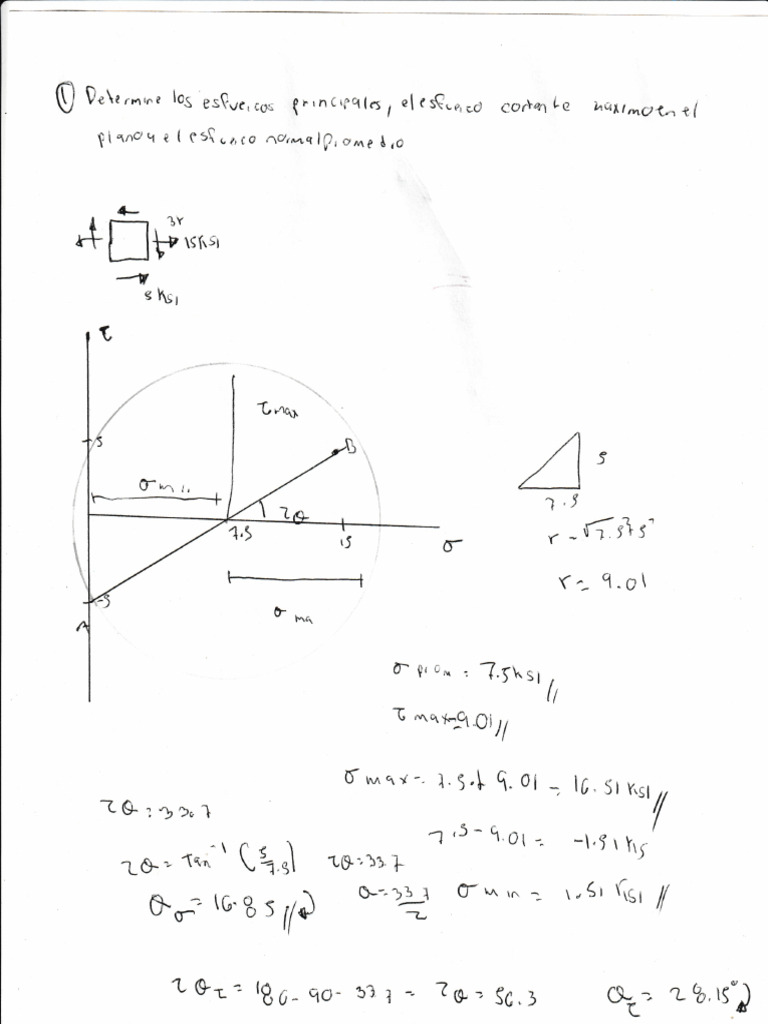 ① Determine los esfuercos principales, el esfuerzo cortante maximo en el
plano y el esfuerzo normal promedio
15KSI
5 KSI
τ
5
τ max
B
σ min
2θ
7.5
15
σ
-5
A
σ ma
5
7.5
r = √7.5²+5²
r = 9.01
σ prom = 7.5KSI //
τ max = 9.01 //
σ max = 7.5 + 9.01 = 16.51 KSI //
2θ = 33.7
7.5 - 9.01 = -1.51 KIS
2θ = Tan⁻¹ (5/7.5) 2θ = 33.7
θσ = 16.85 // θ = 33.7/2 σ min = 1.51 KSI //
2θτ = 180 - 90 - 33.7 = 2θ = 56.3 θτ = 28.15°